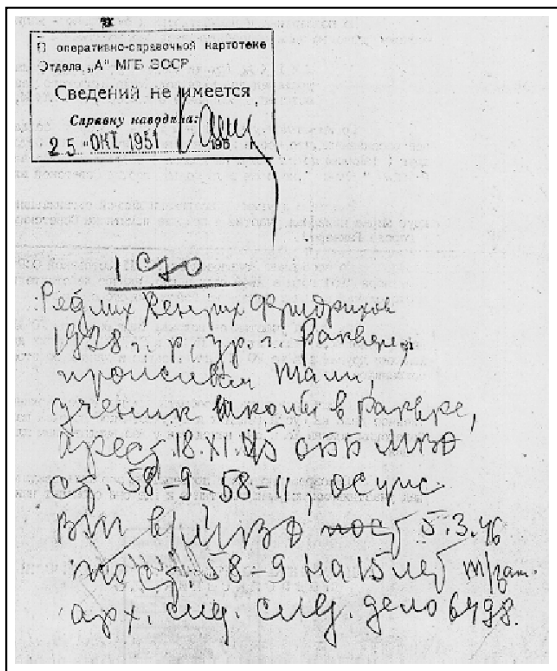 В оперативно-справочной картотеке
Отдела „А" МГБ ЭССР
Сведений не имеется
Справку наводила:
25 ОКТ 1951 195
1 СДО
Рейлих Хенрих Фридрихов
1928 г. р, ур. г. Раквере,
проживал там,
ученик школы в Раквере,
Арест. 18.XI.45 ОББ МВД
ст. 58-9-58-11, осужс.
ВТ в/МВД 5.3.46
по ст. 58-9 на 15 лет т/зак.
арх. след. дело 6498.